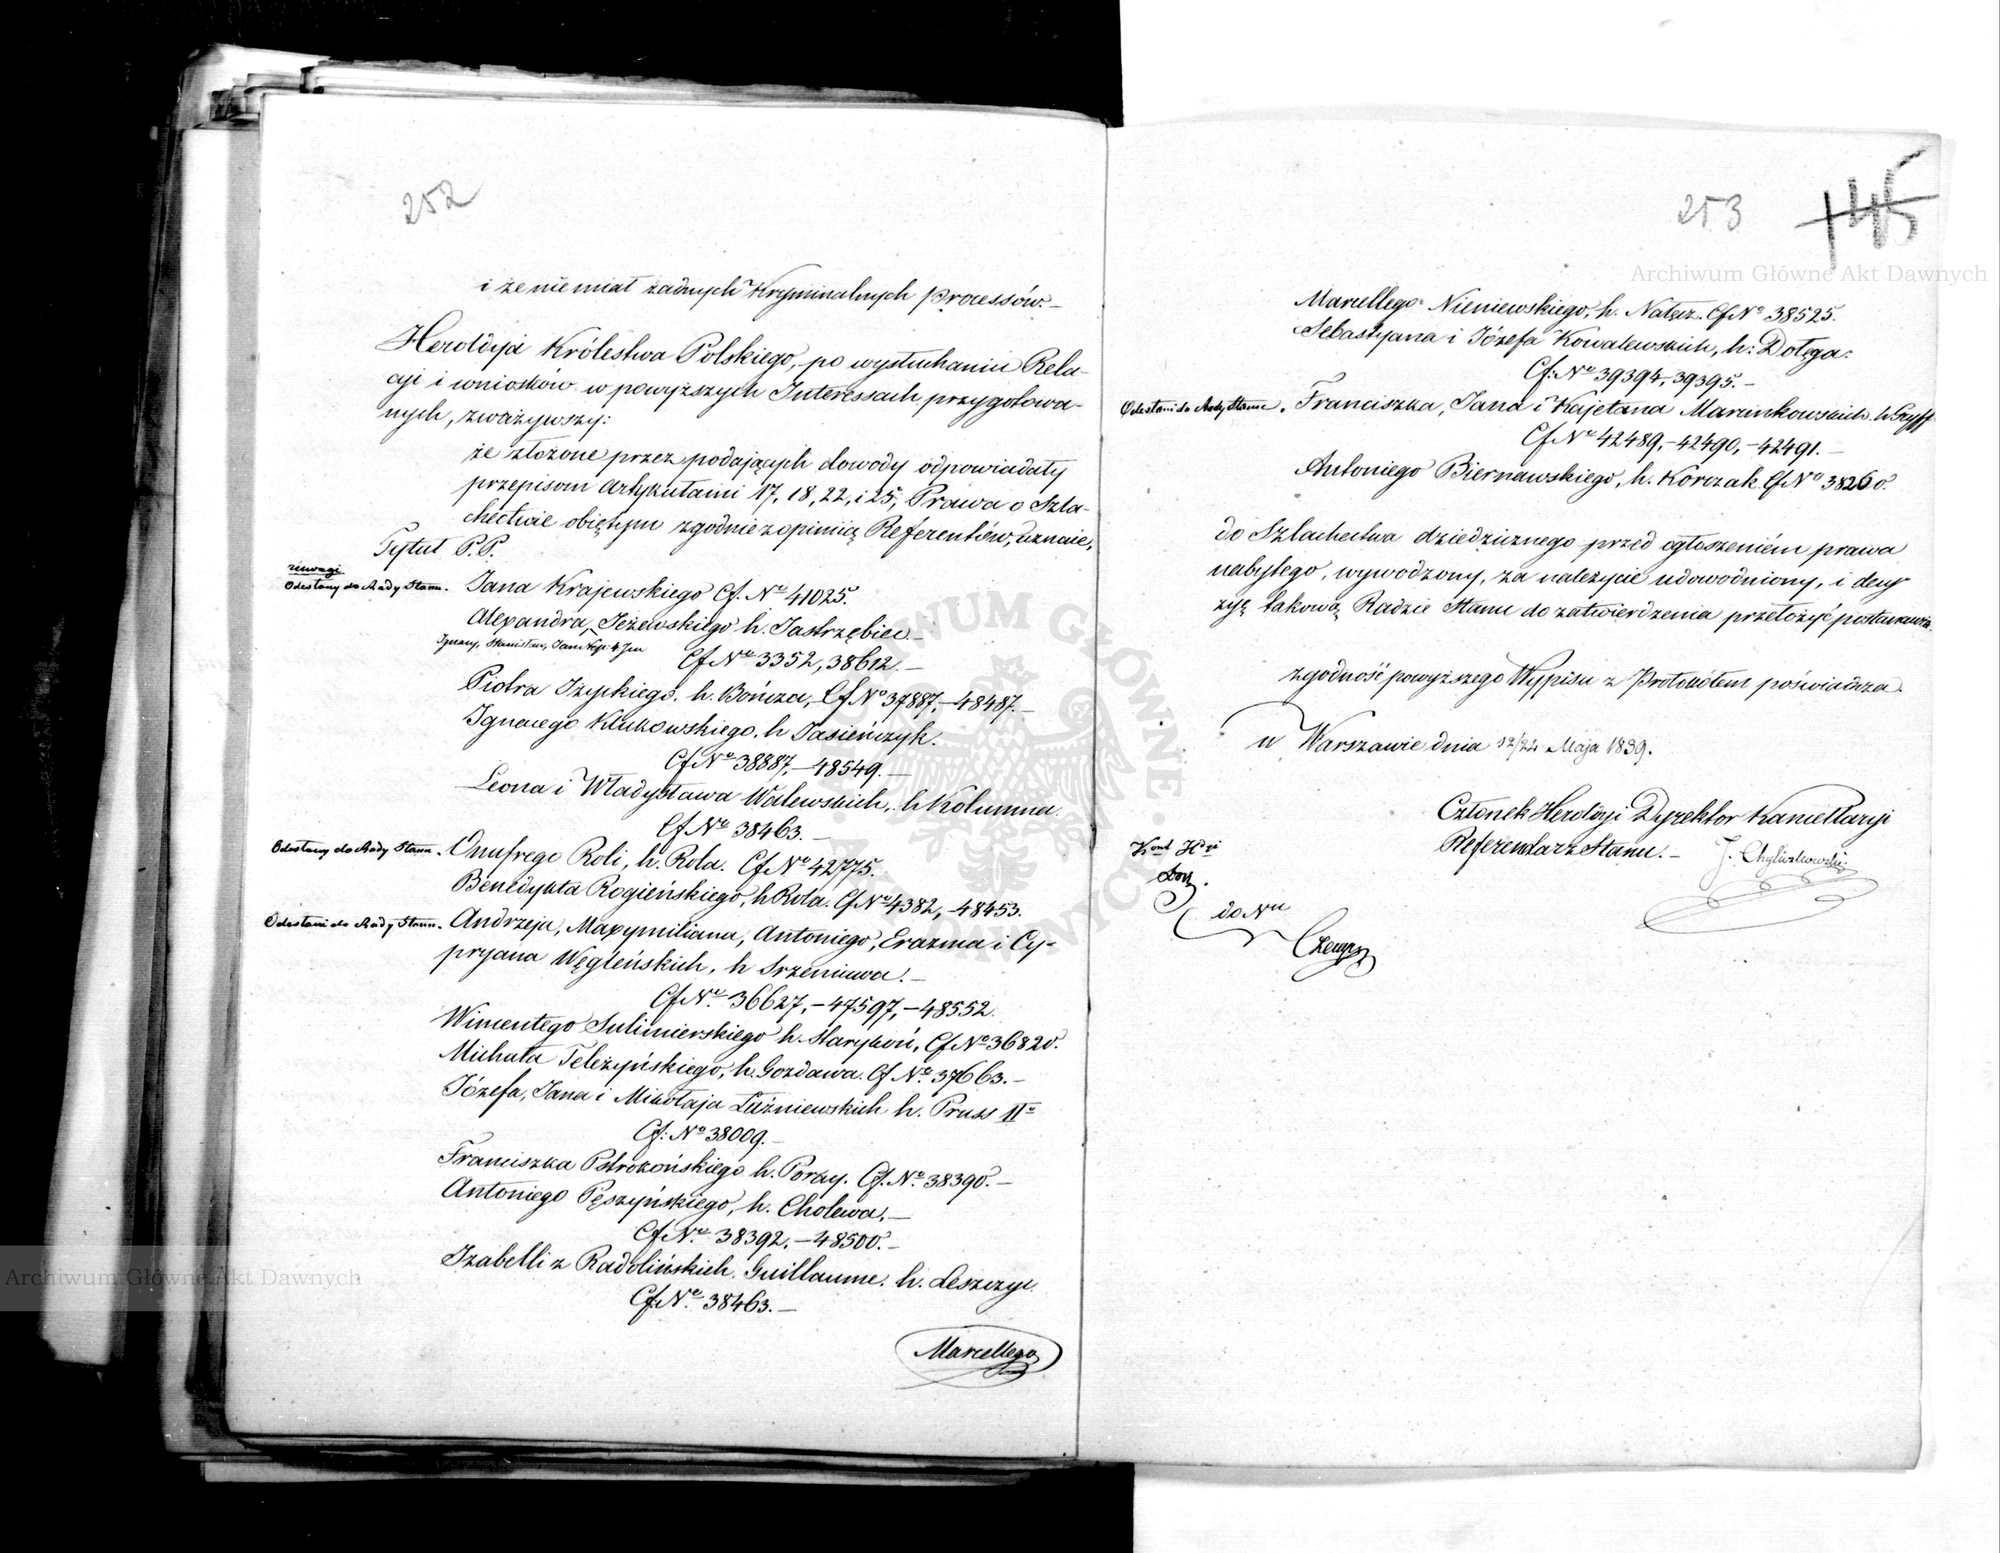 252
i że nie miał żadnych Kryminalnych Processów.—
Heroldyia Królestwa Polskiego, po wysłuchaniu Rela-
cji i wniosków w powyższych Interessach przygotowa-
nych, zważywszy:
że złożone przez podających dowody odpowiadały
przepisom Artykułami 17, 18, 22, i 25, Prawa o Szla-
chectwie objętym zgodnie z opiniią Referentów, uznaie,
Tytuł P.P.
uwagi
Odesłany do Rady Stanu. Jana Krajewskiego Cf. No 41025.
Alexandra, Jeżewskiego h. Jastrzębiec.—
Ignacy, Stanisław, Jan
Cf No 3352, 38612.—
Piotra Izyckiego, h. Bończa, Cf No 37887,—48487.—
Ignacego Kukowskiego, h Jasieńczyk.
Cf No 38887,—48549.—
Leona i Władysława Walewskich, h Kolumna.
Cf No 38463.—
Odesłany do Rady Stanu. Onufrego Roli, h. Rola. Cf No 42775.
Benedykta Rogieńskiego, h Rola. Cf No 4382,—48453.
Odesłani do Rady Stanu. Andrzeja, Maxymiliana, Antoniego, Erazma i Cy-
pryana Węgleńskich, h Srzeniawa.—
Cf No. 36627,—47597,—48552.
Wincentego Sulimierskiego h. Starykoń, Cf No 36820.
Michała Teleżyńskiego, h. Gozdawa. Cf No. 37663.—
Józefa, Jana i Mikołaja Łuźniewskich h. Pruss IIo
Cf: No 38009.—
Franciszka Pstrokońskiego h. Poray. Cf. No. 38390.—
Antoniego Pęszyńskiego, h. Cholewa,—
Cf No. 38392,—48500.—
Izabelli z Radolińskich Guillaume, h. Leszczyc.
Cf No. 38463.—
Marcellego
253 145
Archiwum Główne Akt Dawnych
Marcellego Nieniewskiego, h. Nałęcz. Cf No 38525.
Sebastyana i Józefa Kowalewskich, h: Dołęga:
Cf: No 39394, 39395.—
Odesłani do Rady Stanu. Franciszka, Jana i Kajetana Marcinkowskich h Gryff
Cf No 42489,—42490,—42491.—
Antoniego Biernawskiego, h. Korczak Cf No 38260.
do Szlachectwa dziedzicznego przed ogłoszeniem prawa
nabytego, wywodzony, za należycie udowodniony, i decy-
zyę takową Radzie Stanu do zatwierdzenia przełożyć postanawia.
Zgodność powyższego Wypisu z Protokółem poświadcza.
w Warszawie dnia 12/24 Maja 1839.
Członek Heroldyi Dyrektor Kancellaryi
Referendarz Stanu.— J. Chyliczkowski
do Nru
ARCHIWUM GŁÓWNE AKT DAWNYCH
Archiwum Główne Akt Dawnych